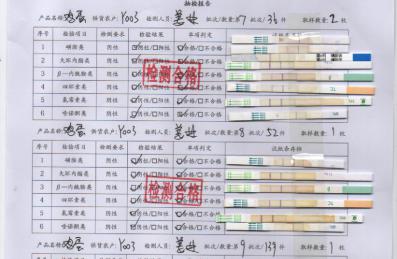 抽检报告
产品名称: 鸡蛋 供货农户: Y003 检测人员: 批次/数量: 第7 批次/36 件 取样数量: 2 枚
序号 检验项目 检测要求 检验结果 单项判定 试纸条存样
1 磺胺类 阴性 ☑阴性/□阳性 ☑合格/□不合格
2 大环内酯类 阴性 ☑阴性/□阳性 ☑合格/□不合格
3 β-内酰胺类 阴性 ☑阴性/□阳性 ☑合格/□不合格
4 四环素类 阴性 ☑阴性/□阳性 ☑合格/□不合格
5 氟霉素类 阴性 ☑阴性/□阳性 ☑合格/□不合格
6 喹诺酮类 阴性 ☑阴性/□阳性 ☑合格/□不合格
检测合格
产品名称: 鸡蛋 供货农户: Y003 检测人员: 批次/数量: 第8 批次/52件 取样数量: 1 枚
序号 检验项目 检测要求 检验结果 单项判定 试纸条存样
1 磺胺类 阴性 ☑阴性/□阳性 ☑合格/□不合格
2 大环内酯类 阴性 ☑阴性/□阳性 ☑合格/□不合格
3 β-内酰胺类 阴性 ☑阴性/□阳性 ☑合格/□不合格
4 四环素类 阴性 ☑阴性/□阳性 ☑合格/□不合格
5 氟霉素类 阴性 ☑阴性/□阳性 ☑合格/□不合格
6 喹诺酮类 阴性 ☑阴性/□阳性 ☑合格/□不合格
检测合格
产品名称: 鸡蛋 供货农户: Y003 检测人员: 批次/数量: 第9 批次/139件 取样数量: 1 枚